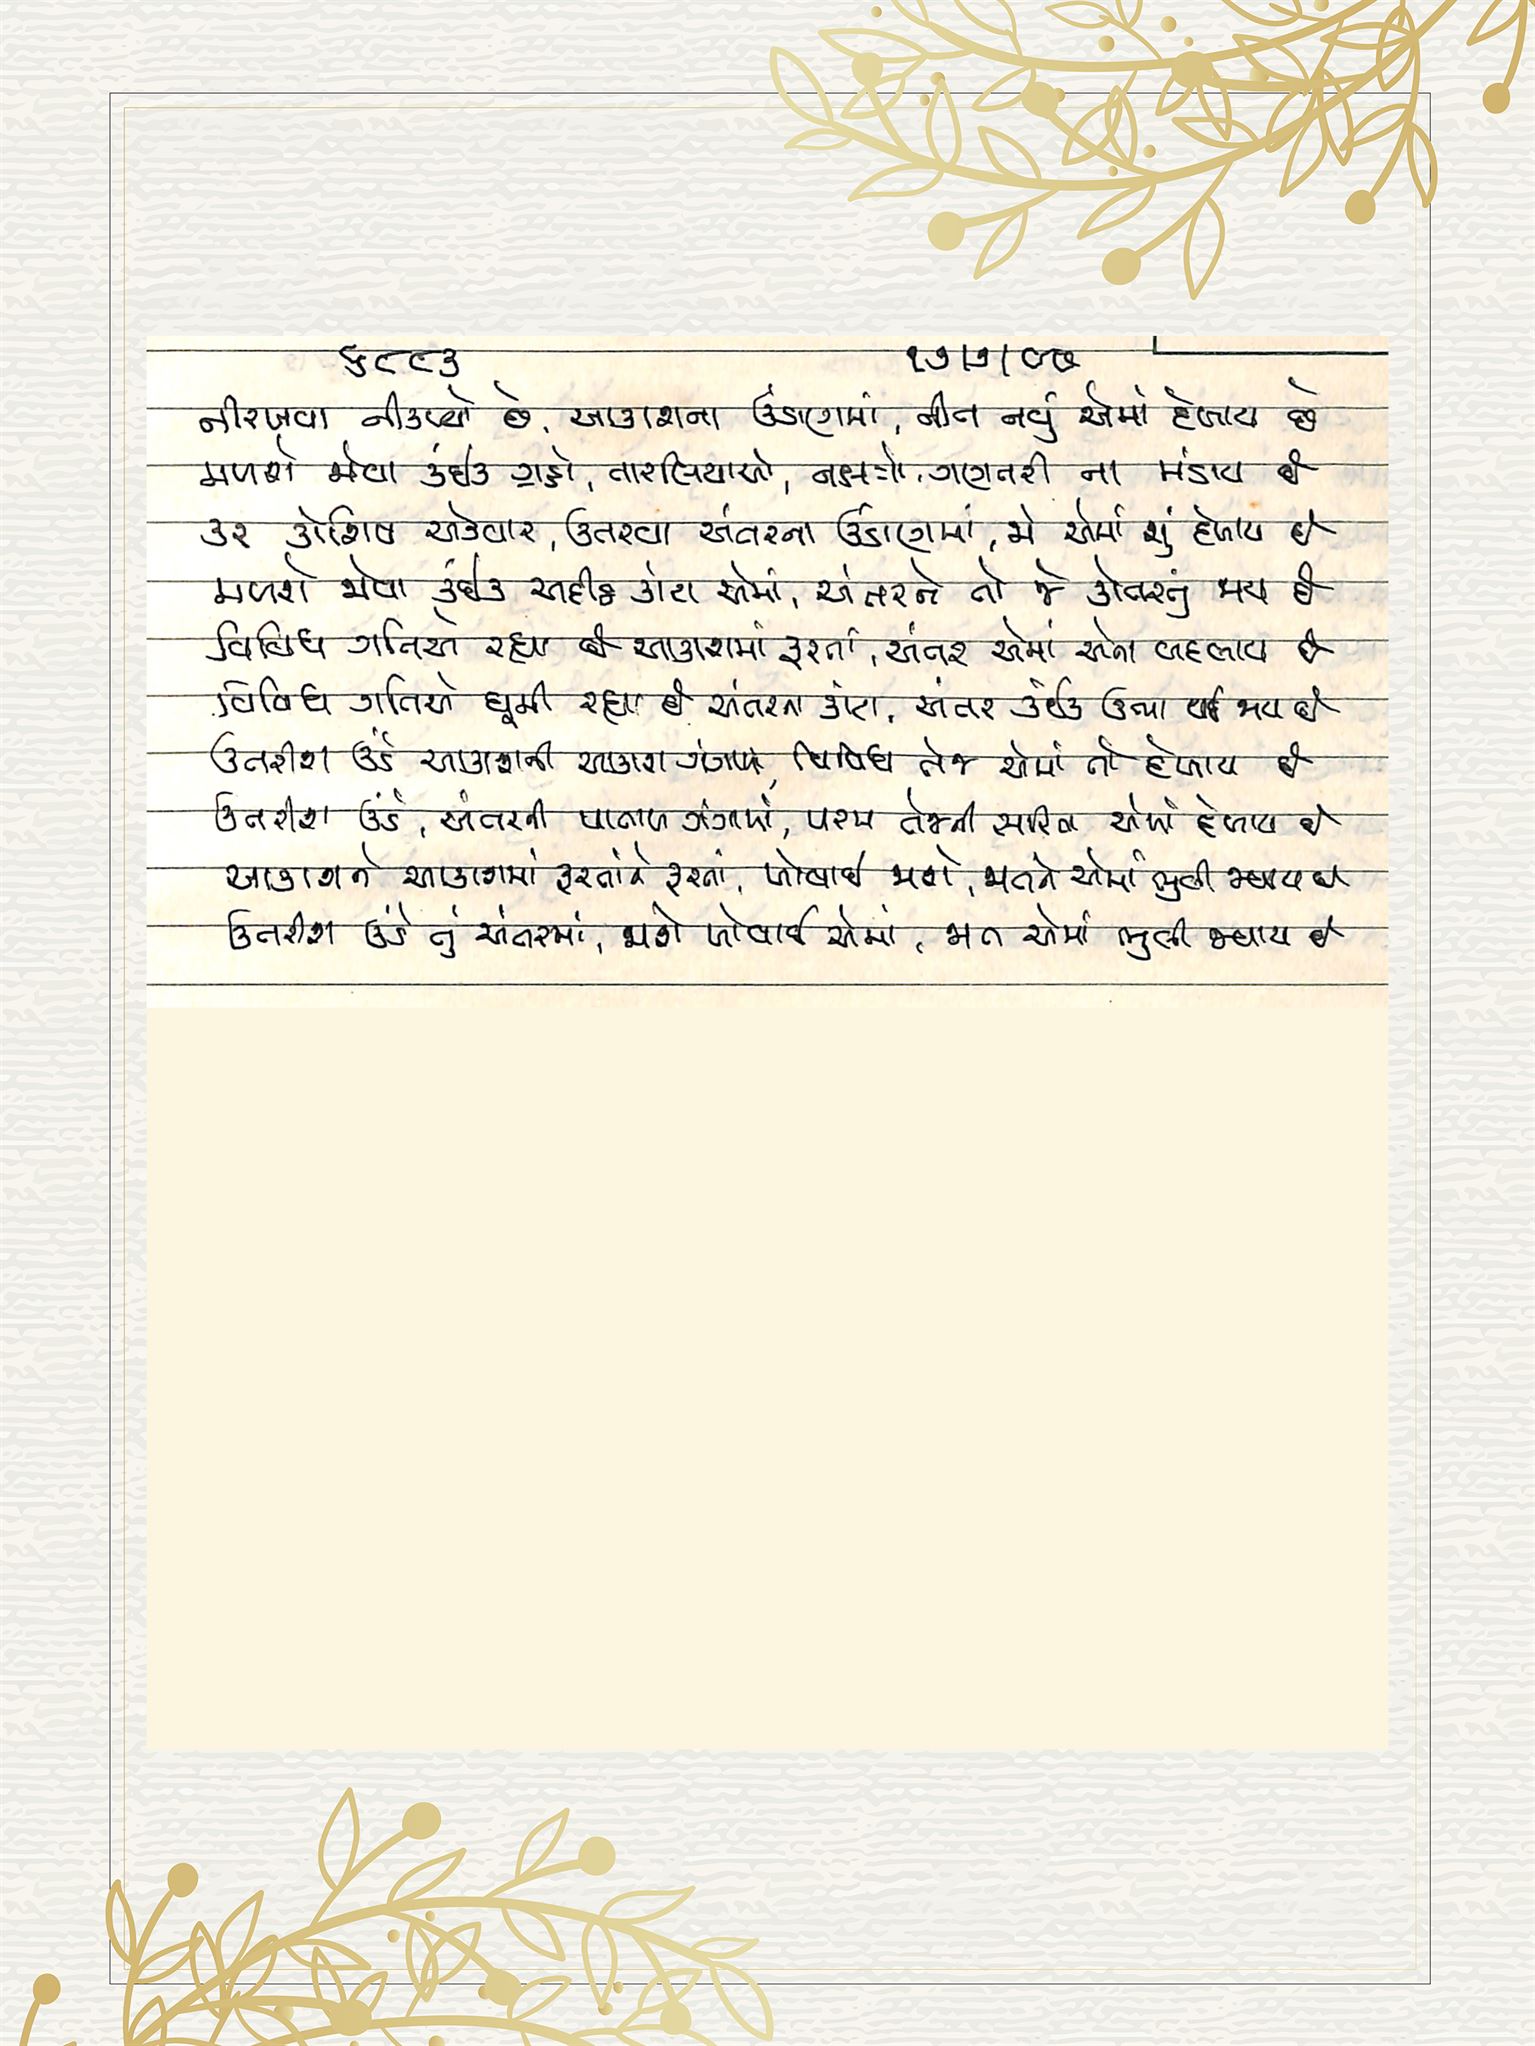 ૬૮૮૩ ૧૭/૭/૯૭
નીરખવા નીકળ્યો છે, આકાશના ઉંડાણમાં, નીત નવું એમાં દેખાય છે
મળશે જોવા કંઈક ગ્રહો, તારલિયાઓ, નક્ષત્રો, ગણતરી ના મંડાય છે
કર કોશિષ એકવાર, ઉતરવા અંતરના ઉંડાણમાં, જો એમાં શું દેખાય છે
મળશે જોવા કંઈક અદીઠ કાંટા એમાં, અંતરને તો જે કોતરતું જાય છે
વિવિધ ગતિએ રહ્યા છે આકાશમાં ફરતાં, અંતર એમાં એના બદલાય છે
વિવિધ ગતિએ ઘૂમી રહ્યા છે અંતરના કાંટા, અંતર કંઈક ઉભા થઈ જાય છે
ઉતરીશ ઉંડે આકાશની આકાશ ગંગામાં, વિવિધ તેજ એમાં તો દેખાય છે
ઉતરીશ ઉંડે, અંતરની પાતાળ ગંગામાં, પરમ તેજની સરિતા એમાં દેખાય છે
આકાશને આકાશમાં ફરતાંને ફરતાં, ખોવાઈ જાશે, જાતને એમાં ભુલી જવાય છે
ઉતરીશ ઉંડે તું અંતરમાં, જાશે ખોવાઈ એમાં, જાત એમાં ભુલી જવાય છે